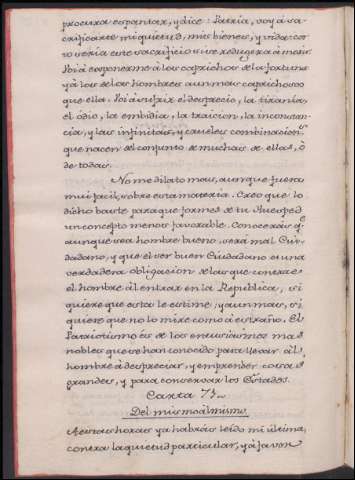 procura espantar, y dice: Patria, voy á sa-
crificarte mi quietud, mis bienes, y vida: cor-
to sería este sacrificio si se redugera á morir.
Boi á esponerme á los caprichos de la fortuna
y á los de los hombres aun mas caprichosos
que ella. Boi á sufrir el desprecio, la tiranía,
el odio, la embidia, la traicion, la inconstan-
cia, y las infinitas, y crueles combinacion.s
que nacen del conjunto de muchas de ellas, ò
de todas.
No me dilato mas, aunque fuera
mui facil, sobre esta materia. Creo que lo
dicho baste para que formes de tu Huesped
un concepto menos favorable. Conocerás q.e
aunque sea hombre bueno, será mal Ciu-
dadano, y que el ser buen Ciudadano es una
verdadera obligacion de las que contrae
el hombre al entrar en la Republica, si
quiere que esta le estime, y aun mas, si
quiere que no lo mire como á estraño. El
Patriotismo és de los entusiasmos mas
nobles que se han conocido para llevar ál
hombre á despreciar, y emprender cosas
grandes, y para conservar los Estados.
Carta 71.
Del mismo al mismo.
A estas horas ya habrás leido mi última,
contra la quietud particular, y á favor